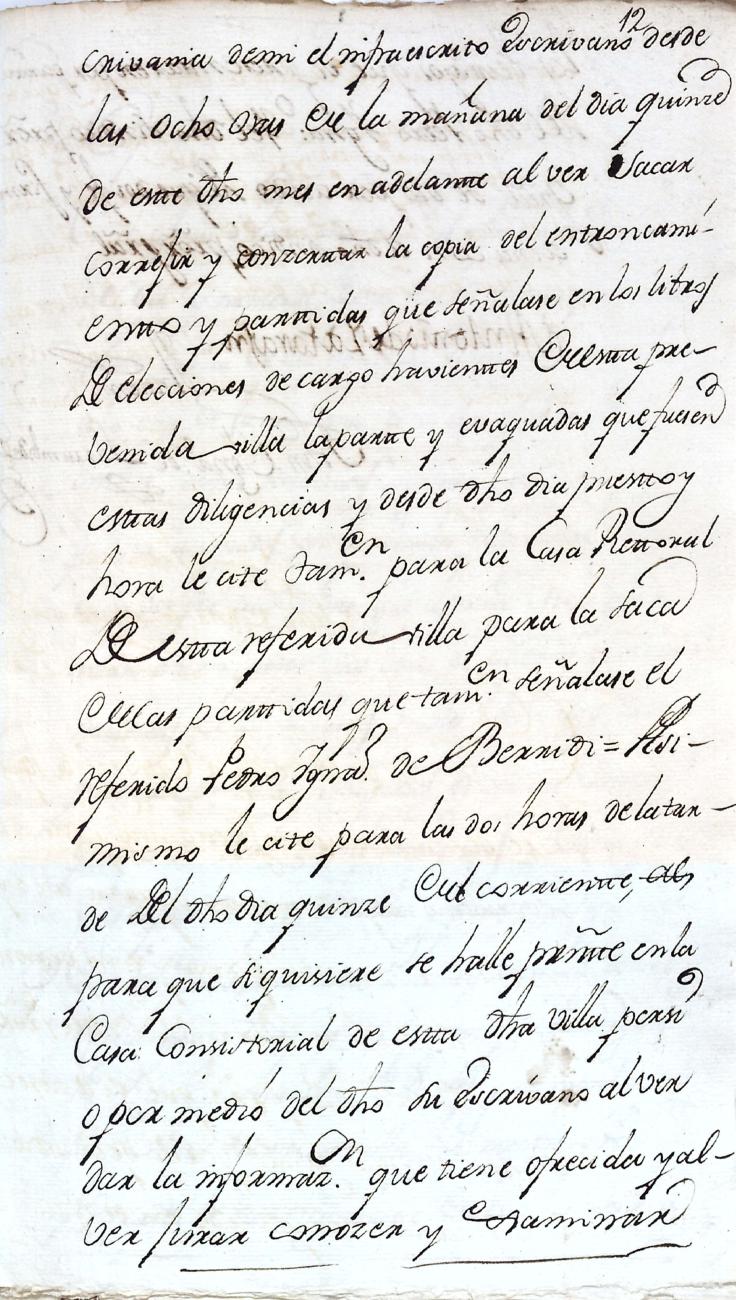 12
crivania demi el infraescrito Escrivano desde
las ocho oras de la mañana del dia quinze
de estte dho mes en adelantte al ver sacar
correjir y conzerttar la copia del entroncami-
entto y parttidas que señalase en los litros
de elecciones de cargo havienttes de estta pre-
venida villa la partte y evaquadas que fuesen
esttas diligencias y desde dho dia puestto y
hora le cite tam.en para la Casa Rettoral
de estta referida villa para la saca
de las parttidas que tam.en señalase el
referido Pedro Ygna.o de Berridi = Asi-
mismo le cite para las dos horas de la tar-
de del dho dia quinze del corrientte, al
para que si quisiere se halle presñtte en la
Casa Consistorial de estta dha villa por si
o por medio del dho su Escrivano al ver
dar la informaz.on que tiene ofrecida y al-
ver jurar conozer y examinar